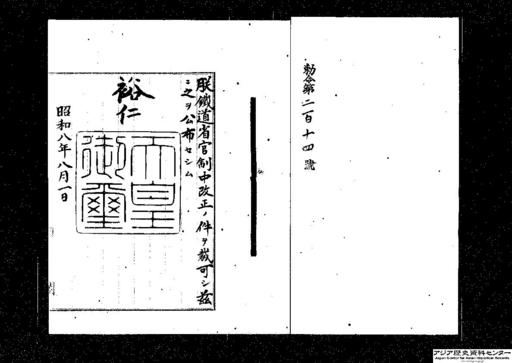 勅令第二百十四號
朕鐵道省官制中改正ノ件ヲ裁可シ茲
ニ之ヲ公布セシム
裕仁
天皇御璽
昭和八年八月一日
アジア歴史資料センター
Japan Center for Asian Historical Records